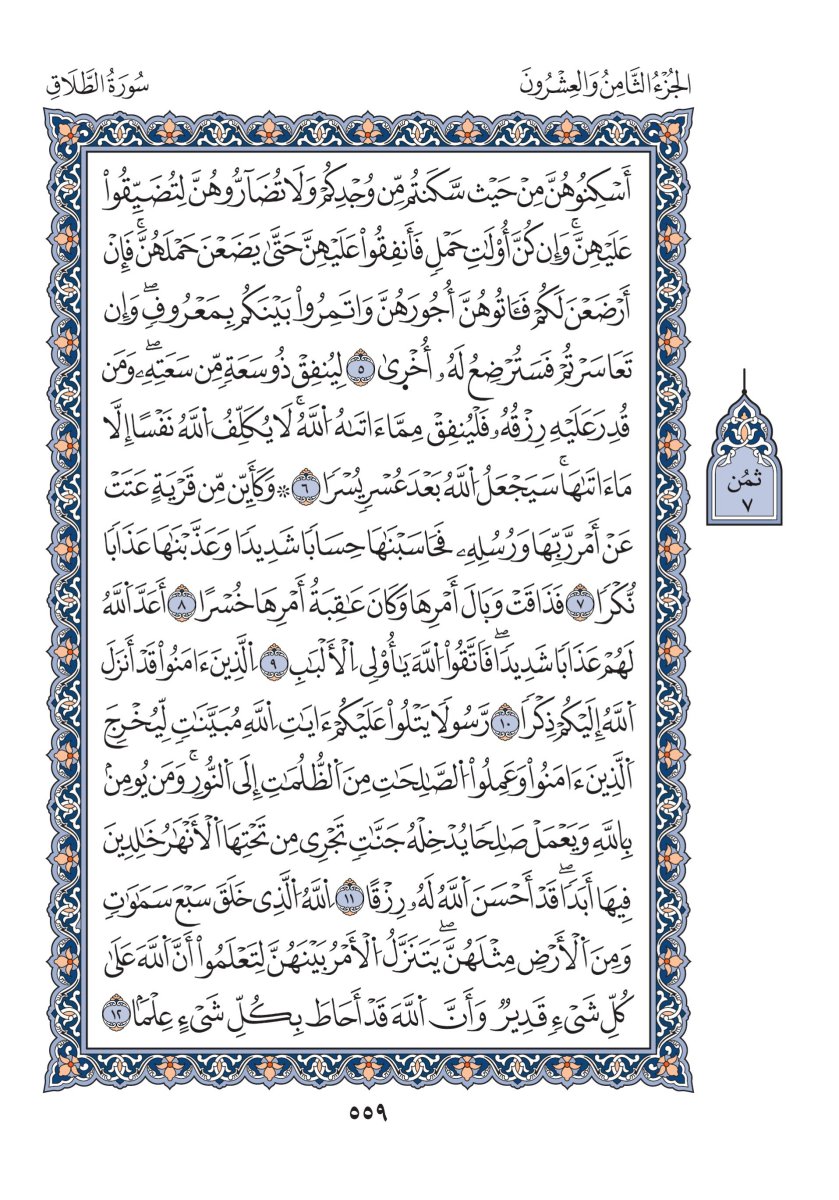 الجُزْءُ الثَّامِنُ وَالعِشْرُونَ
سُورَةُ الطَّلَاقِ
أَسْكِنُوهُنَّ مِنْ حَيْث سَّكَنتُم مِّن وُجْدِكُمْ وَلَا تُضَآرُّوهُنَّ لِتُضَيِّقُواْ
عَلَيْهِنَّۚ وَإِن كُنَّ أُوْلَٰتِ حَمْلٍ فَأَنفِقُواْ عَلَيْهِنَّ حَتَّىٰ يَضَعْنَ حَمْلَهُنَّۚ فَإِنْ
أَرْضَعْنَ لَكُمْ فَـَٔاتُوهُنَّ أُجُورَهُنَّ وَاتَمِرُواْ بَيْنَكُم بِمَعْرُوفٍۖ وَإِن
تَعَاسَرْتُمْ فَسَتُرْضِعُ لَهُۥ أُخْرِىٰ ٥ لِيُنفِقْ ذُو سَعَةٍ مِّن سَعَتِهِۦۖ وَمَن
قُدِرَ عَلَيْهِ رِزْقُهُۥ فَلْيُنفِقْ مِمَّا ءَاتَىٰهُ اُللَّهُۚ لَا يُكَلِّفُ اُللَّهُ نَفْسًا إِلَّا
مَا ءَاتَىٰهَاۚ سَيَجْعَلُ اُللَّهُ بَعْدَ عُسْرٍ يُسْرًا ٦ ۞ وَكَأَيِّن مِّن قَرْيَةٍ عَتَتْ
عَنْ أَمْر رَّبِّهَا وَرُسُلِهِۦ فَحَاسَبْنَٰهَا حِسَابًا شَدِيدًا وَعَذَّبْنَٰهَا عَذَابًا
نُّكْرًا ٧ فَذَاقَتْ وَبَالَ أَمْرِهَا وَكَانَ عَٰقِبَةُ أَمْرِهَا خُسْرًا ٨ أَعَدَّ اَللَّهُ
لَهُمْ عَذَابًا شَدِيدًاۖ فَاتَّقُواْ اُللَّهَ يَٰأُوْلِي اِلْأَلْبَٰبِ ٩ اَلَّذِينَ ءَامَنُواْ قَدْ أَنزَلَ
اَللَّهُ إِلَيْكُمْ ذِكْرًا ١٠ رَّسُولًا يَتْلُواْ عَلَيْكُمْ ءَايَٰتِ اِللَّهِ مُبَيَّنَٰتٍ لِّيُخْرِجَ
اَلَّذِينَ ءَامَنُواْ وَعَمِلُواْ اُلصَّٰلِحَٰتِ مِنَ اَلظُّلُمَٰتِ إِلَى اَلنُّورِۚ وَمَن يُومِنْ
بِاللَّهِ وَيَعْمَلْ صَٰلِحًا يُدْخِلْهُ جَنَّٰتٍ تَجْرِي مِن تَحْتِهَا اَلْأَنْهَٰرُ خَٰلِدِينَ
فِيهَا أَبَدًاۖ قَدْ أَحْسَنَ اَللَّهُ لَهُۥ رِزْقًا ١١ اِللَّهُ اُلَّذِي خَلَقَ سَبْعَ سَمَٰوَٰتٍ
وَمِنَ اَلْأَرْضِ مِثْلَهُنَّۖ يَتَنَزَّلُ اُلْأَمْرُ بَيْنَهُنَّ لِتَعْلَمُواْ أَنَّ اَللَّهَ عَلَىٰ
كُلِّ شَيْءٍ قَدِيرٌ وَأَنَّ اَللَّهَ قَدْ أَحَاطَ بِكُلِّ شَيْءٍ عِلْمًا ١٢
ثمُن
٧
٥٥٩